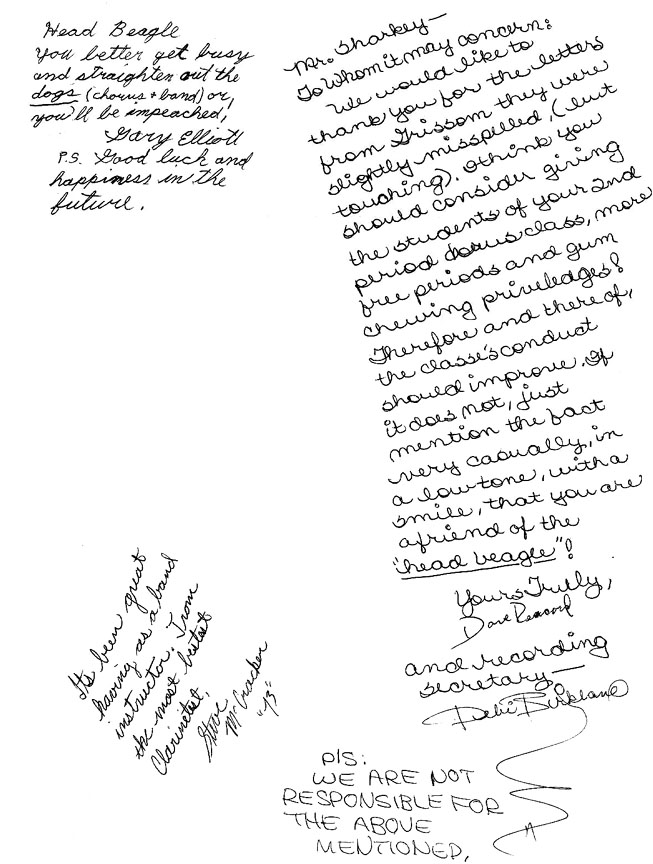 Head Beagle
You better get busy
and straighten out the
dogs (chorus + band) or,
you'll be impeached,
Gary Elliott
P.S. Good luck and
happiness in the
future.
Mr. Sharkey—
To Whom it may concern:
We would like to
thank you for the letters
from Grissom they were
slightly misspilled, (but
touching). I think you
should consider giving
the students of your 2nd
period chorus class, more
free periods and gum
chewing priviledges!
Therefore and there of,
the classe's conduct
should improve. If
it does not, just
mention the fact
very casually, in
a low tone, with a
smile, that you are
a friend of the
"head beagle"!
Yours Truly,
Dave
and recording
secretary—
Debi Birkland
P/S:
WE ARE NOT
RESPONSIBLE FOR
THE ABOVE
MENTIONED.
It's been great
having as a band
instructor. From
the most bestest
Clarinetest,
Steve
McCracken
"73"